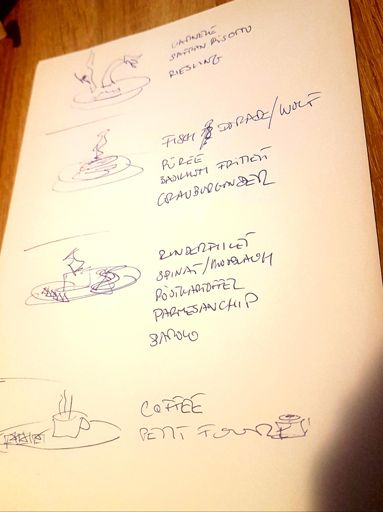 GARNELE
SAFRAN RISOTTO
RIESLING
FISCH DORADE/WOLF
PÜREE
BASILIKUM FRITIERT
GRAUBURGUNDER
RINDERFILET
SPINAT/MORCHEL
RÖSTKARTOFFEL
PARMESANCHIP
BAROLO
COFFEE
PETIT FOURS